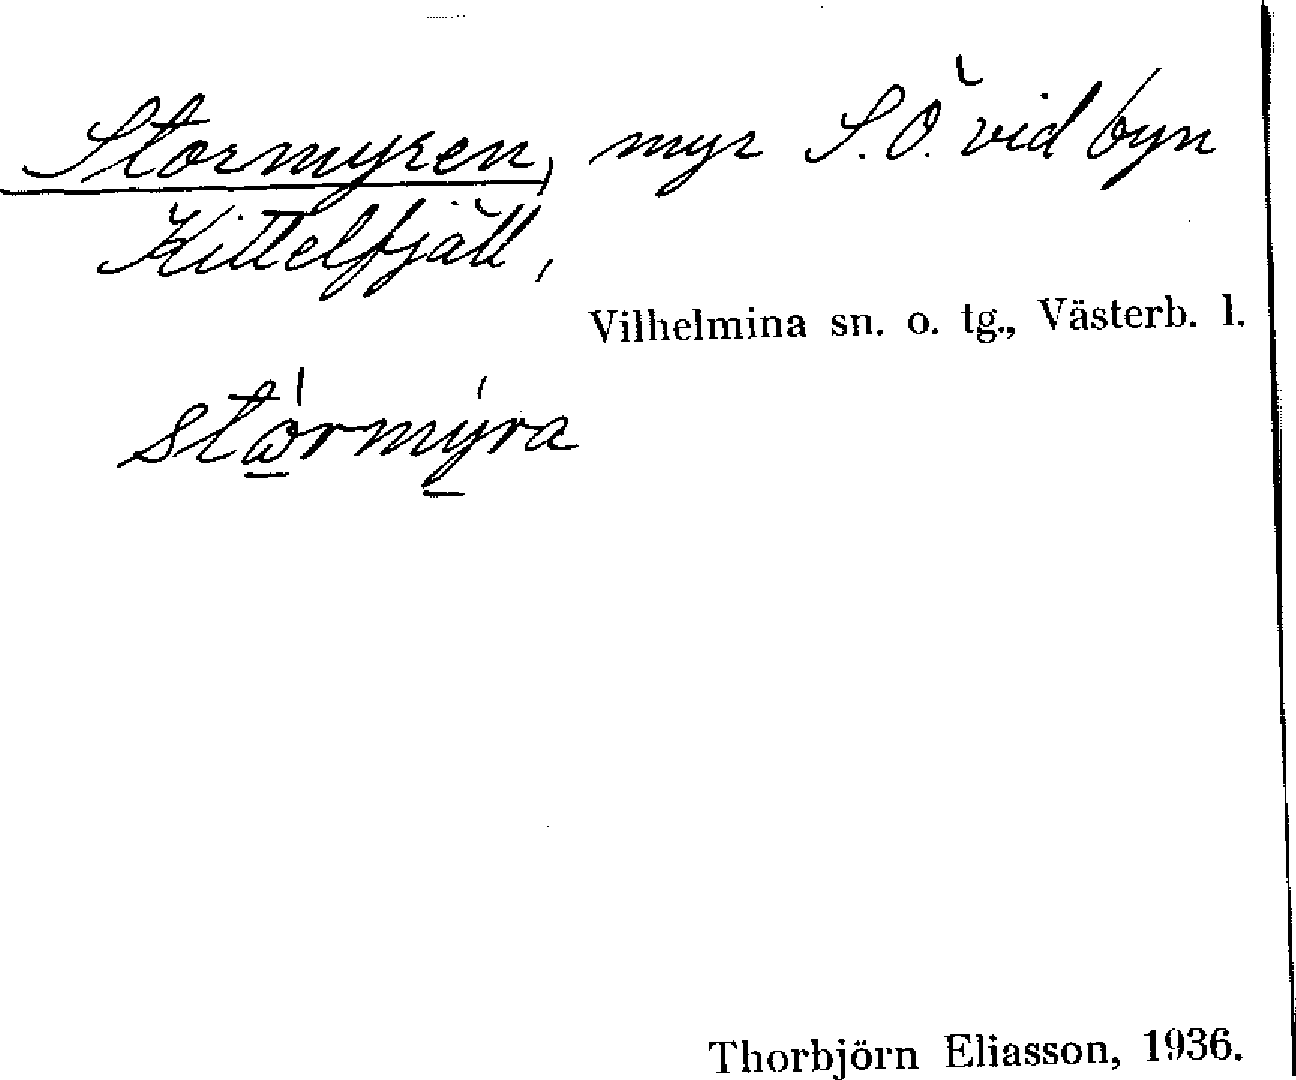 Stormyren, myr S.Ö. vid byn
Kittelfjäll,
Vilhelmina sn. o. tg., Västerb. l.
stórmýra
Thorbjörn Eliasson, 1936.